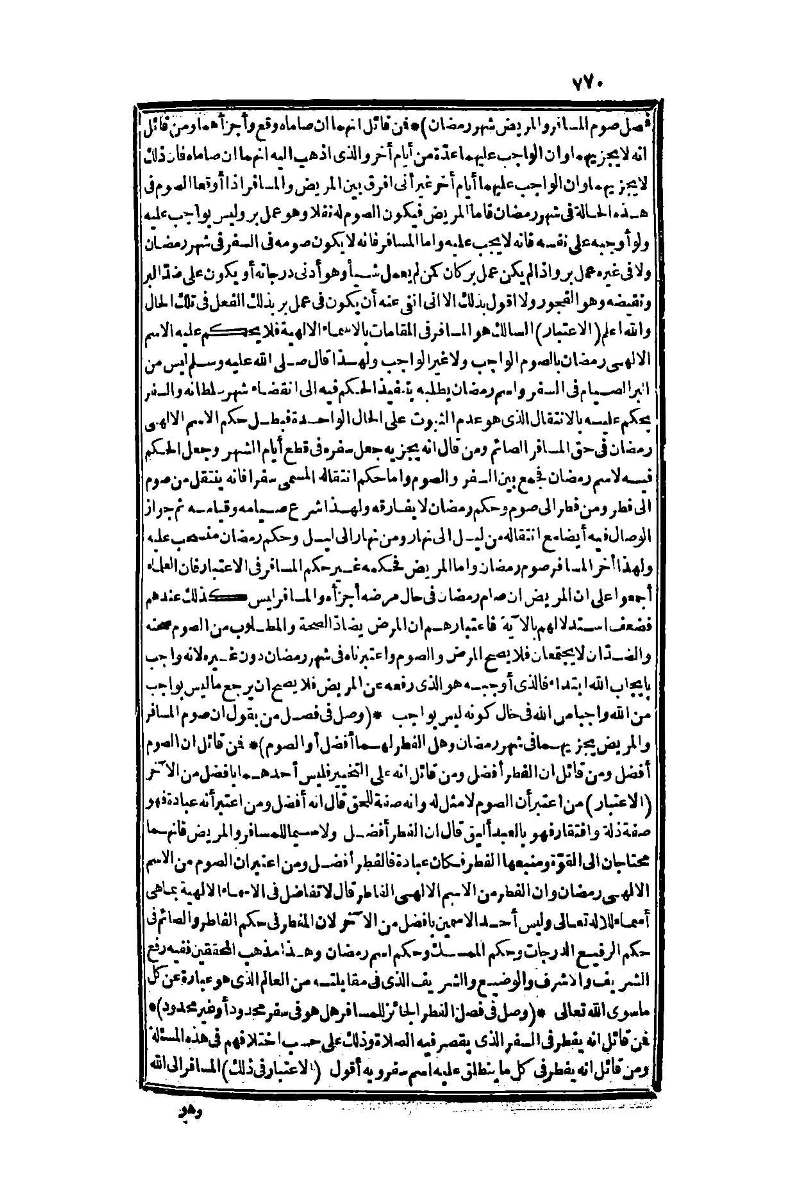 ٧٧٠
فصل صوم المسافر والمريض شهر رمضان)* فمن قائل انهما ان صاماه وقع وأجزأهما ومن قائل
انه لا يجزيهما وان الواجب عليهما عدة من أيام أخر والذى اذهب اليه انهما ان صاماه فان ذلك
لا يجزيهما وان الواجب عليهما أيام أخر غير أنى افرق بين المريض والمسافر اذا أوقعا الصوم فى
هذه الحالة فى شهر رمضان فاما المريض فيكون الصوم له نفلا وهو عمل بر وليس بواجب عليه
ولو أوجبه على نفسه فانه لا يجب عليه واما المسافر فانه لا يكون صومه فى السفر فى شهر رمضان
ولا فى غيره عمل بر واذ الم يكن عمل بر كان كمن لم يعمل شيأ وهو أدنى درجاته أو يكون على ضد البر
ونقيضه وهو الفجور ولا اقول بذلك الا انى انفى عنه أن يكون فى عمل بر بذلك الفعل فى تلك الحال
والله اعلم (الاعتبار) السالك هو المسافر فى المقامات بالاسماء الالهية فلا يحكم عليه الاسم
الالهى رمضان بالصوم الواجب ولا غير الواجب ولهذا قال صلى الله عليه وسلم ليس من
البر الصيام فى السفر واسم رمضان يطلبه بتنفيذ الحكم فيه الى انقضاء شهر سلطانه والسفر
يحكم عليه بالانتقال الذى هو عدم الثبوت على الحال الواحدة فبطل حكم الاسم الالهى
رمضان فى حق المسافر الصائم ومن قال انه يجزيه جعل سفره فى قطع أيام الشهر وجعل الحكم
فيه لاسم رمضان فجمع بين السفر والصوم واما حكم انتقاله المسمى سفرا فانه ينتقل من صوم
الى فطر ومن فطر الى صوم وحكم رمضان لا يفارقه ولهذا شرع صيامه وقيامه ثم جواز
الوصال فيه أيضا مع انتقاله من ليل الى نهار ومن نهار الى ليل وحكم رمضان منسحب عليه
ولهذا أخر المسافر صوم رمضان واما المريض فحكمه غير حكم المسافر فى الاعتبار فان العلماء
أجمعوا على ان المريض ان صام رمضان فى حال مرضه أجزأه والمسافر ليس كذلك عندهم
فضعف استدلالهم بالآية فاعتبارهم ان المرض يضاد الصحة والمطلوب من الصوم صحته
والضدان لا يجتمعان فلا يصح المرض والصوم واعتبرناه فى شهر رمضان دون غيره لانه واجب
بايجاب الله ابتداء فالذى أوجبه هو الذى رفعه عن المريض فلا يصح ان يرجع ما ليس بواجب
من الله واجبا من الله فى حال كونه ليس بواجب *(وصل فى فصل من يقول ان صوم المسافر
والمريض يجزيهما فى شهر رمضان وهل الفطر لهما أفضل أو الصوم)* فمن قائل ان الصوم
أفضل ومن قائل ان الفطر أفضل ومن قائل انه على التخيير فليس أحدهما بافضل من الآخر
(الاعتبار) من اعتبر أن الصوم لا مثل له وانه صفة للحق قال انه أفضل ومن اعتبر أنه عبادة فهو
صفة ذلة وافتقار فهو بالعبد أليق قال ان الفطر أفضل ولا سيما للمسافر والمريض فانهما
محتاجان الى القوة ومنبعها الفطر فكان عبادة فالفطر أفضل ومن اعتبر ان الصوم من الاسم
الالهى رمضان وان الفطر من الاسم الالهى الفاطر قال لا تفاضل فى الاسماء الالهية بما هى
أسماء للاله تعالى وليس أحد الاسمين بافضل من الآخر لان المفطر فى حكم الفاطر والصائم فى
حكم الرفيع الدرجات وحكم الممسك وحكم اسم رمضان وهذا مذهب المحققين ففيه رفع
الشريف والاشرف والوضيع والشريف الذى فى مقابلته من العالم الذى هو عبارة عن كل
ماسوى الله تعالى *(وصل فى فصل الفطر الجائز للمسافر هل هو فى سفر محدود أو غير محدود)*
فمن قائل انه يفطر فى السفر الذى يقصر فيه الصلاة وذلك على حسب اختلافهم فى هذه المسئلة
ومن قائل انه يفطر فى كل ما ينطلق عليه اسم سفر وبه أقول (الاعتبار فى ذلك) المسافر الى الله
وهو